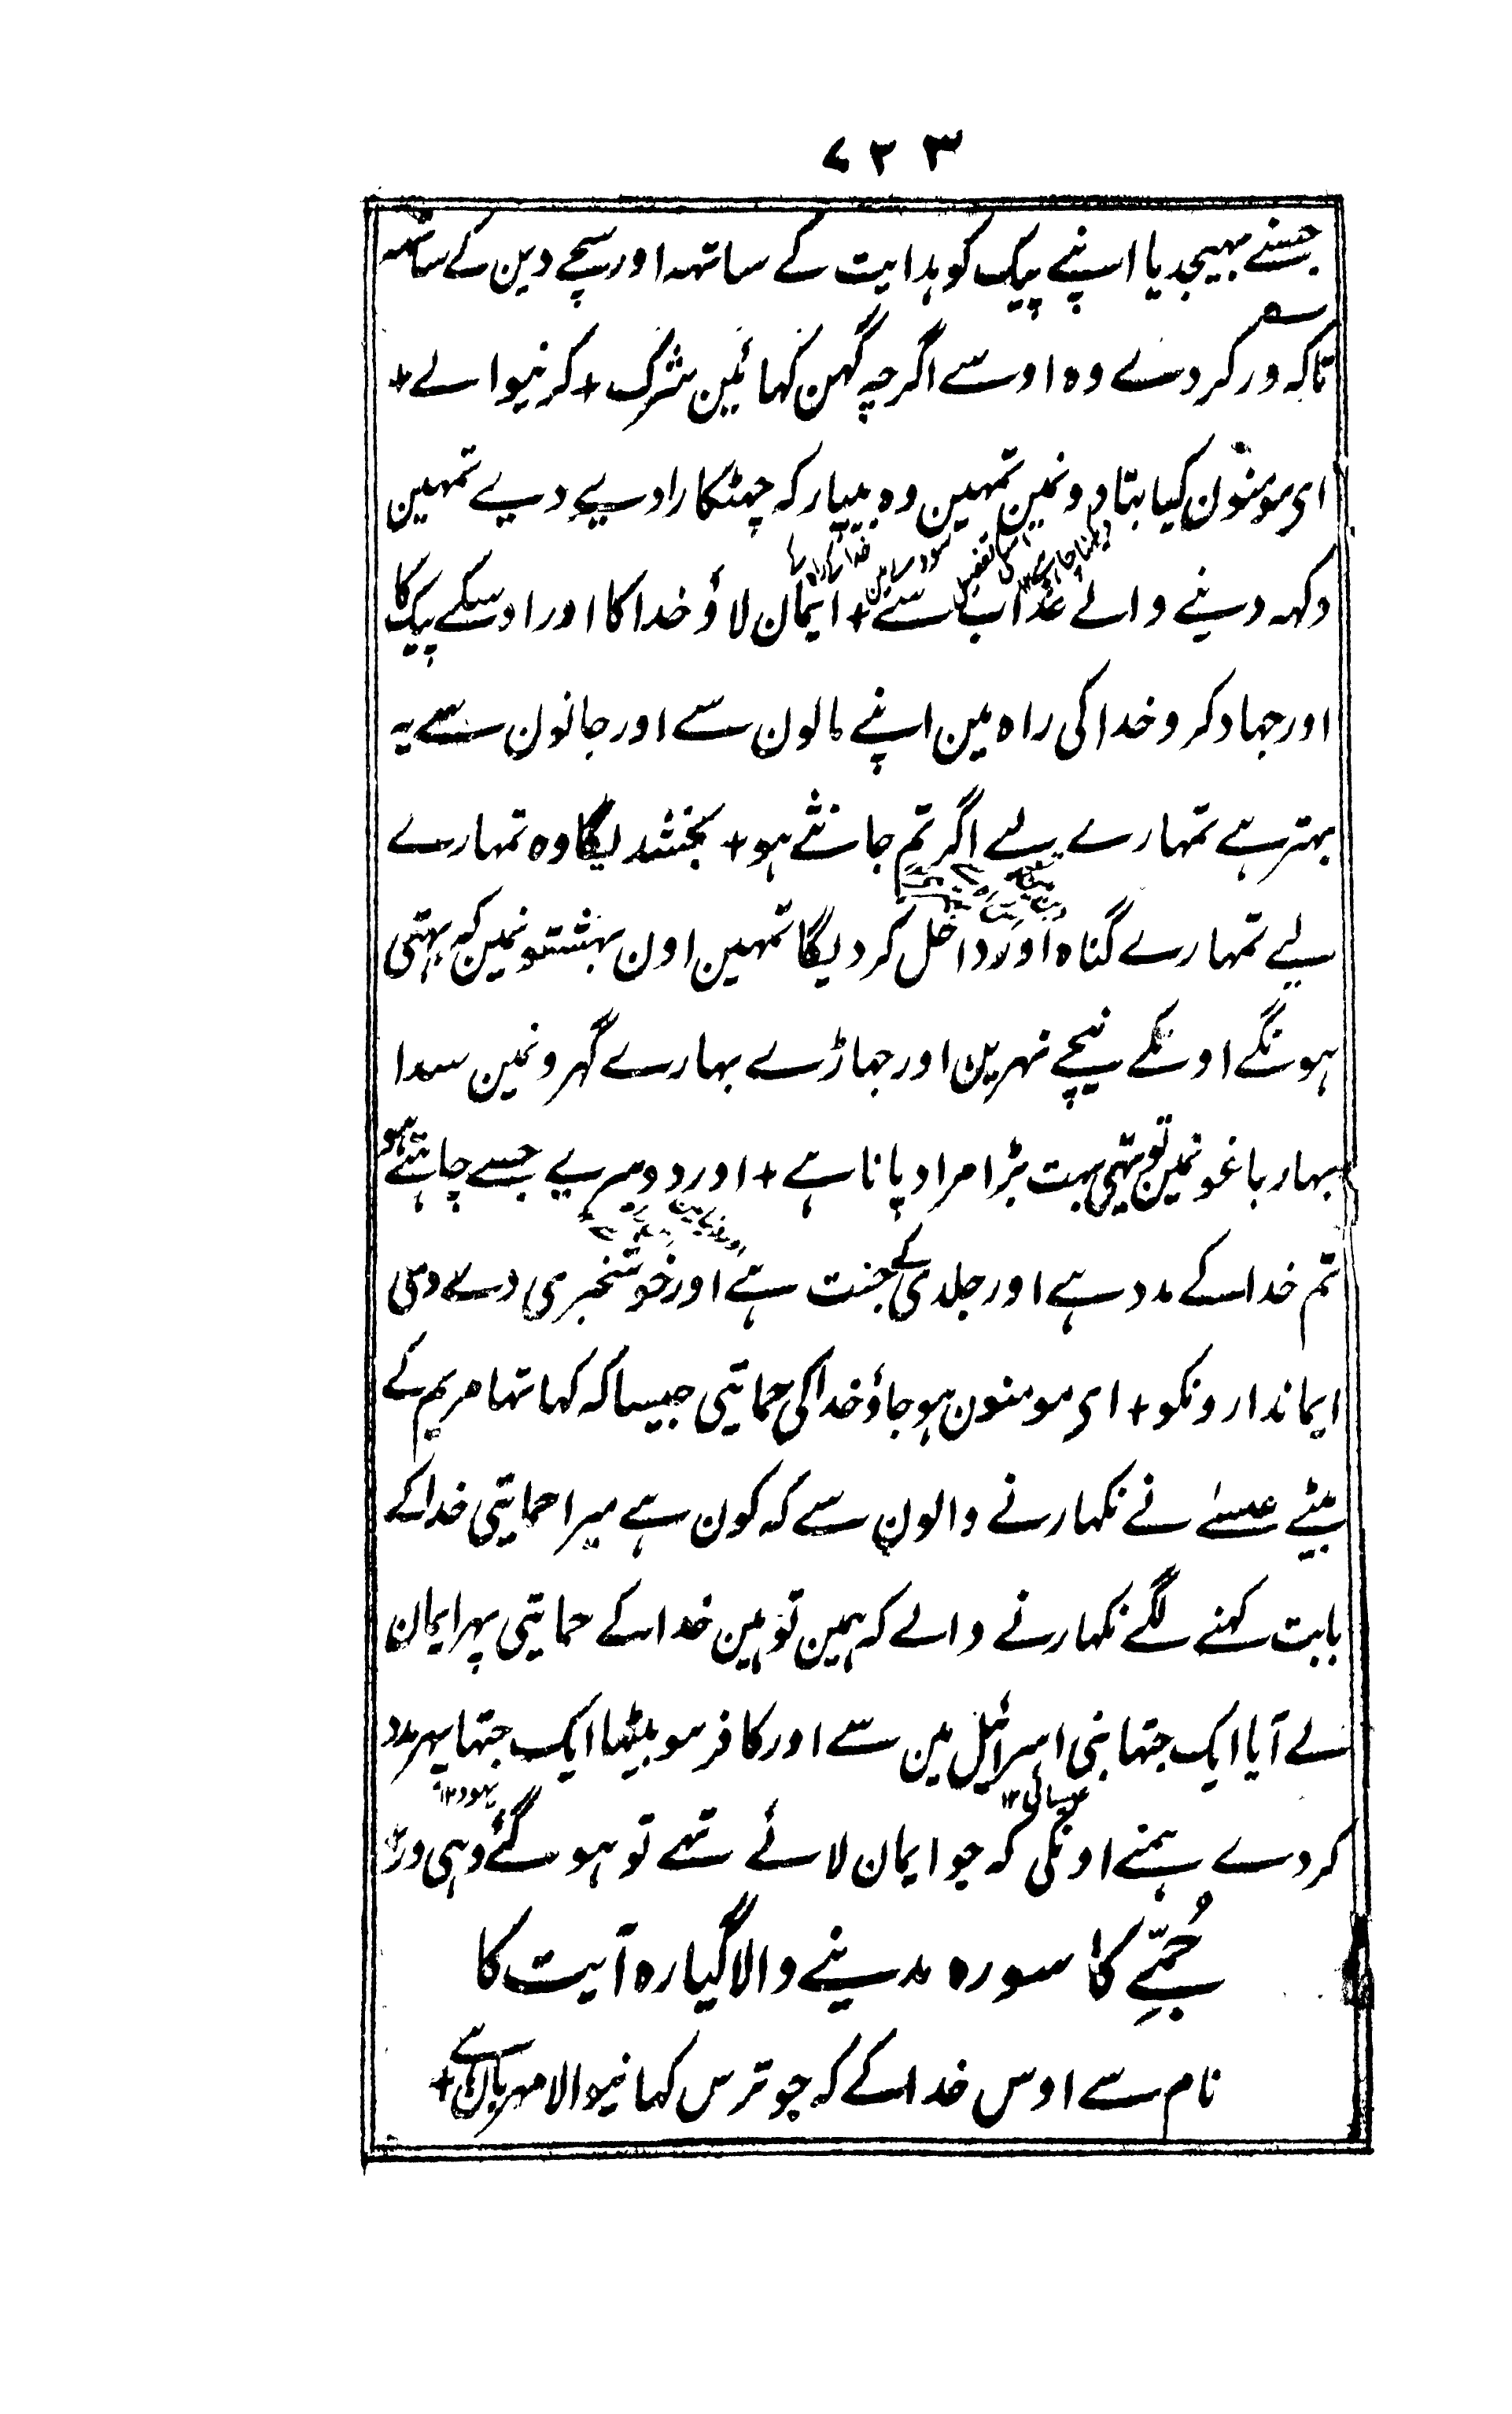 ۷۲۳
جسنے بہیجدیا اپنے پیک کو ہدایت کے ساتہہ اور سچے دین کے ساتہہ
تاکہ ور کردے وہ اوسے اگرچہ گہن کہائین شرک + کرنیوالے +
ای مومنون کیا بتادونمین تمہین وہ بیپار کہ چہٹکارا دیے دیے تمہین
دکہہ دینے والے عذاب سے + ایمان لاؤ خدا کا اور اوسکے پیک کا
اور جہاد کرو خدا کی راہ مین اپنے مالون سے اور جانون سے یہ
بہتر ہے تمہارے لیے اگر تم جانتے ہو + بخشدیگا وہ تمہارے
لیے تمہارے گناہ اور داخل کردیگا تمہین اون بہشتونمین کہ بہتی
ہونگے اونکے نیچے نہرین اور جہاڑے بہارے گہرونمین سدا
بہار باغونمین تو یہی بہت بڑا مراد پانا ہے + اور دوسریے جسے چاہتے ہو
تم خدا کے مدد ہے اور جلدی کے جنت ہے اور خوشخبری دے دی
ایماندارونکو + ای مومنون ہو جاؤ خدا کی حمایتی جیسا کہ کہا تہا مریم کے
بیٹے عیسے نے نکہارنے والون سے کہ کون ہے میرا حمایتی خدا کے
بابت کہنے لگے نکہارنے والے کہ ہمین تو ہین خدا کے حمایتی پہر ایمان
لے آیا ایک جتہا بنی اسرائیل مین سے اور کافر ہو بیٹہا ایک جتہا پہر مدد
عیسائی ۱۲ یہود ۱۲
کردے ہمنے اونکی کہ جو ایمان لائے تہے تو ہو گئے وہی ور
جُمّعے کا سورہ مدینے والا گیارہ آیت کا
نام سے اوس خدا کے کہ جو ترس کہانیوالا مہربان ہے +